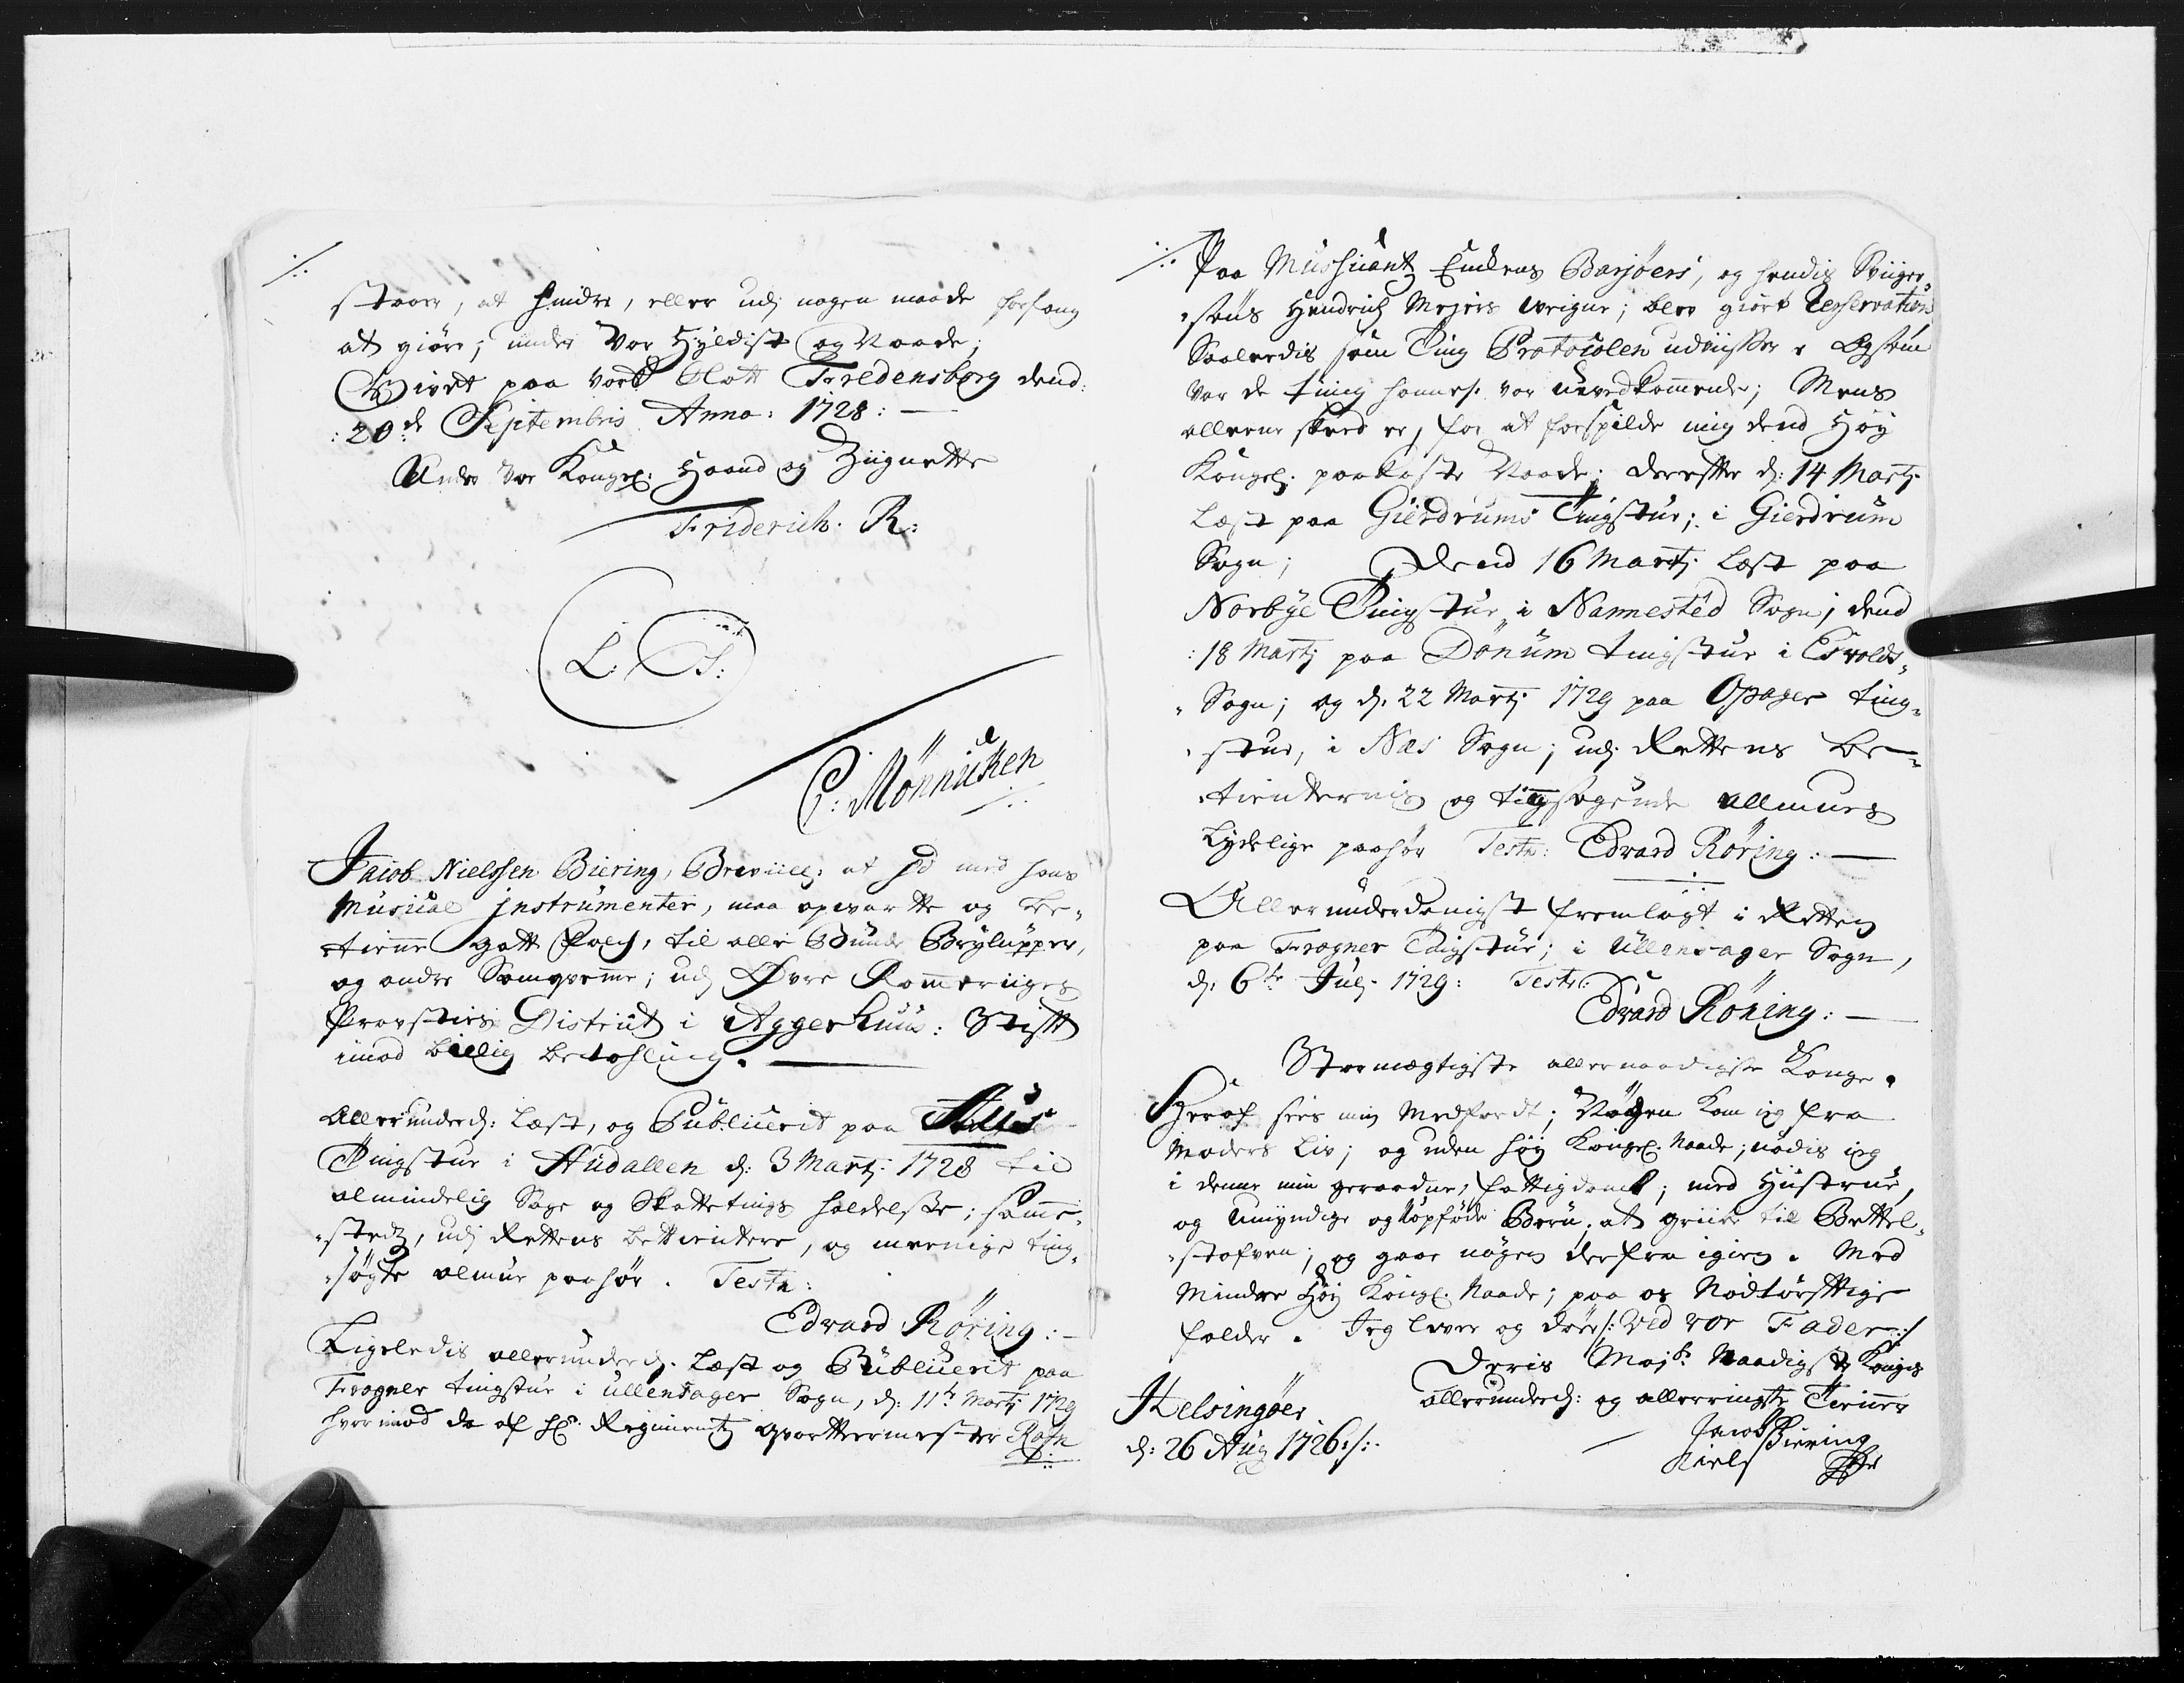 staaer, at hindre, eller udj nogen maade forfang
at giøre; under Vor Hyldist og Naade;
Givet paa vort Slott Fredensborg dend:
:20de Septembris Anno: 1728:
Under Vor Kongel: Haand og Zignette
Friderich. R:
L: S:
C: Mönnicken
Jacob Nielssen Biering, Brevill: at hd med hans
Musical jnstrumenter, maa opvartte og be-
tienne gott Folch, til alle Bunde Brylupper,
og andre Samqvemme; udj Øvre Rommeriiges
Provsties District i Aggershuus: Stift
imod billig betahling.
Allerunderd: læst, og Publicerit paa
Tingstue i Hudallen d: 3 Martj: 1728 til
almindelig Sage og Skattetings holdelsse; samme-
stedtz, udj Rettens betientere, og meenige ting-
søgte almue paahør. Teste:
Edvard Röring:
Ligeledis allerunderd: læst og Publicerit paa
Frogner tingstue i Ullensager Sogn, d: 11te Martj 1729
hvor imod da af hr: Regimentz qvarttermester Rafn
Paa Musicantz Endens Barföers, og hendis Sviiger-
søns Hendrich Mejers veigne; blev giort Reservation
Saaledis som Ting Protocolen udviisser
var de ting hannes. var uvedkommende; Mens
alleene skeed er, for at forspilde mig dend Høy
Kongel: paakaste Naade; Derefter d: 14 Martj:
læst paa Gierdrums Tingstue; i Gierdrum
Sogn; Dend 16 Martj: læst paa
Norbye Tingstue i Nannested Sogn; dend
:18 Martj paa Dönum tingstue i Eidvolds-
Sogn; og d: 22 Martj 1729 paa Opager ting-
stue, i Næs Sogn; udj Rettens be-
tienternis og tingsøgende allmues
lydelige paahør Teste: Edvard Röring:
Allerunderdanigst fremlagt i Retten
paa Frogner Tingstue; i Ullensager Sogn,
d: 6te Julj 1729: Teste:
Edvard Röring:
Stormægtigste allernaadigste Konge.
Heraf sees min Medfardt; Nøgen kom ieg fra
Moders Liv; og uden høy Kongel: Naade; nødis ieg
i denne min geraadne; fattigdomb; med Hustrue,
og Umyndige og uopføde Børn; at griibe til Bettel-
stafven; og gaae nøgen derfra igien. Med
Mindre Høy Kongl: Naade; paa os Nødtørfttige
falder. Jeg lever og døer /: Ved vor Fader :/
Deris Majts: Naadigste Konges
allerunderd: og allerringste Tienner
Helsingöer
d: 26 Aug 1726:/:
Jacob Biering
Niels